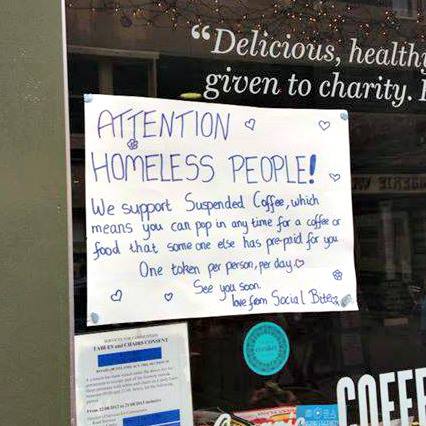 “Delicious, healthy
given to charity.
ATTENTION
HOMELESS PEOPLE!
We support Suspended Coffee, which
means you can pop in any time for a coffee or
food that some one else has pre-paid for you
One token per person, per day
See you soon
love from Social Bite
TABLES and CHAIRS CONSENT
COFFE